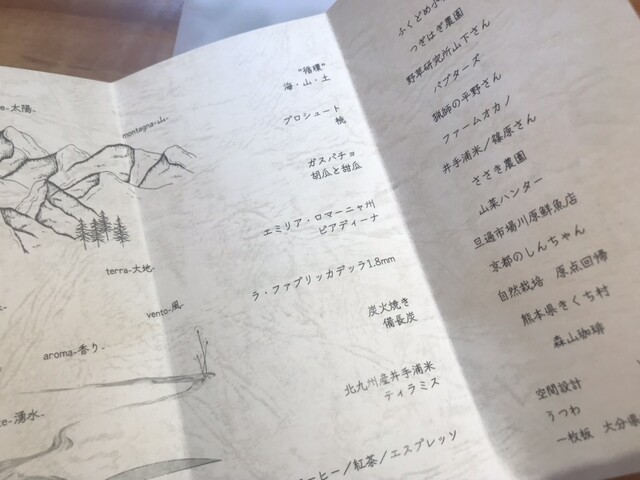 -太陽-
montagna-山-
terra-大地-
vento-風-
aroma-香り-
-湧水-
"循環"
海・山・土
プロシュート
桃
ガスパチョ
胡瓜と甜瓜
エミリア・ロマーニャ州
ピアディーナ
ラ・ファブリッカデッラ1.8mm
炭火焼き
備長炭
北九州産井手浦米
ティラミス
コーヒー/紅茶/エスプレッソ
つぎはぎ農園
野草研究所山下さん
バブターズ
猟師の平野さん
ファームオカノ
井手浦米/篠原さん
ささき農園
山菜ハンター
旦過市場川原鮮魚店
京都のしんちゃん
自然栽培 原点回帰
熊本県きくち村
森山珈琲
空間設計
うつわ
一枚板 大分県